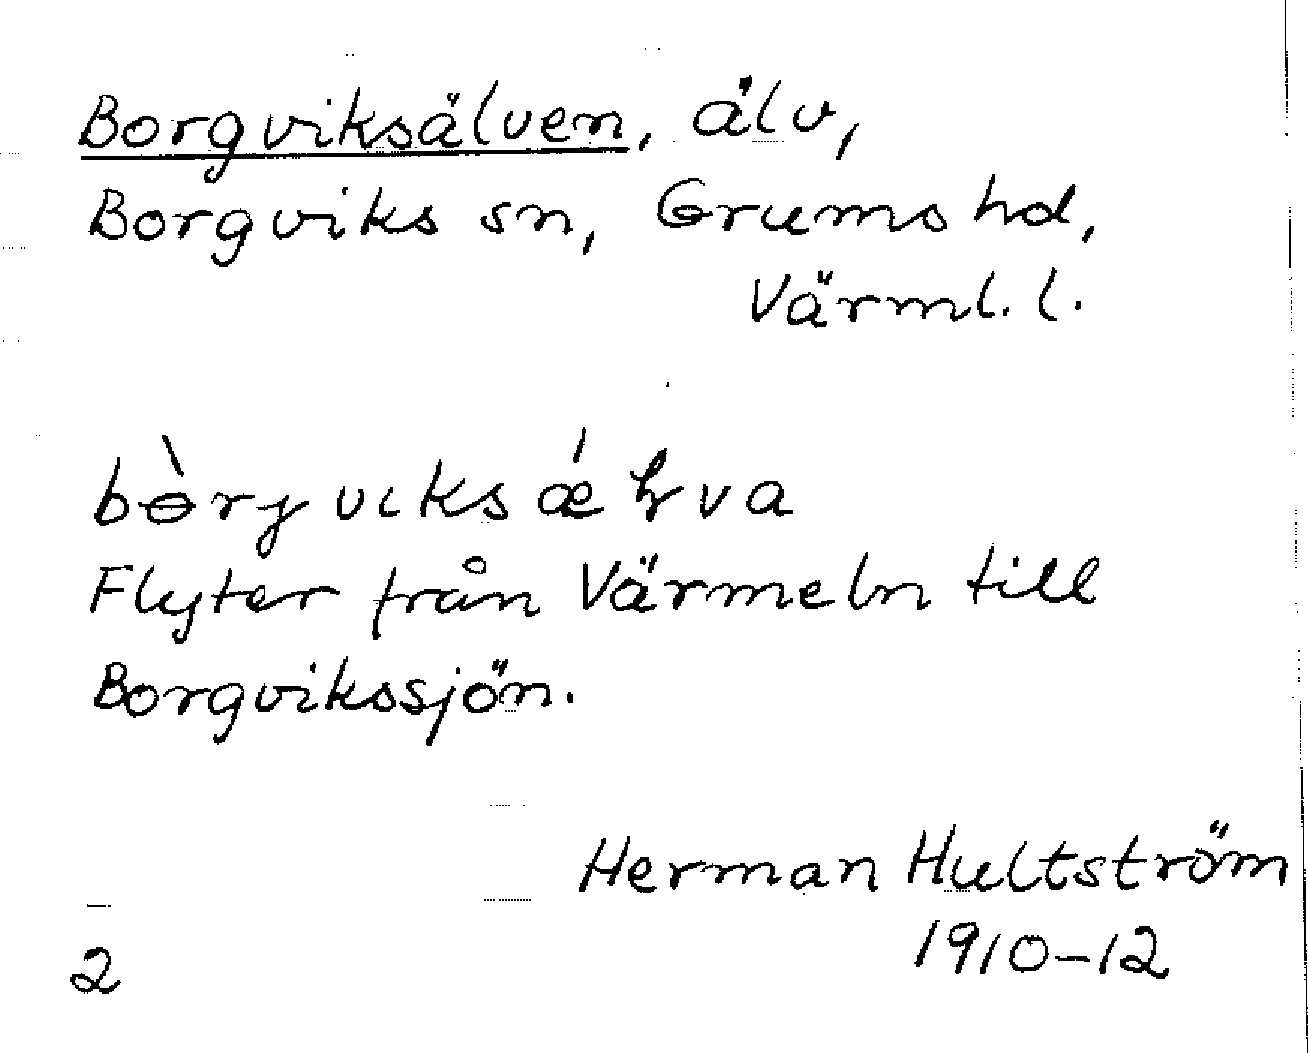 Borgviksälven, älv,
Borgviks sn, Grums hd,
Värml. l.
Flyter från Värmeln till
Borgvikssjön.
Herman Hultström
1910-12
2